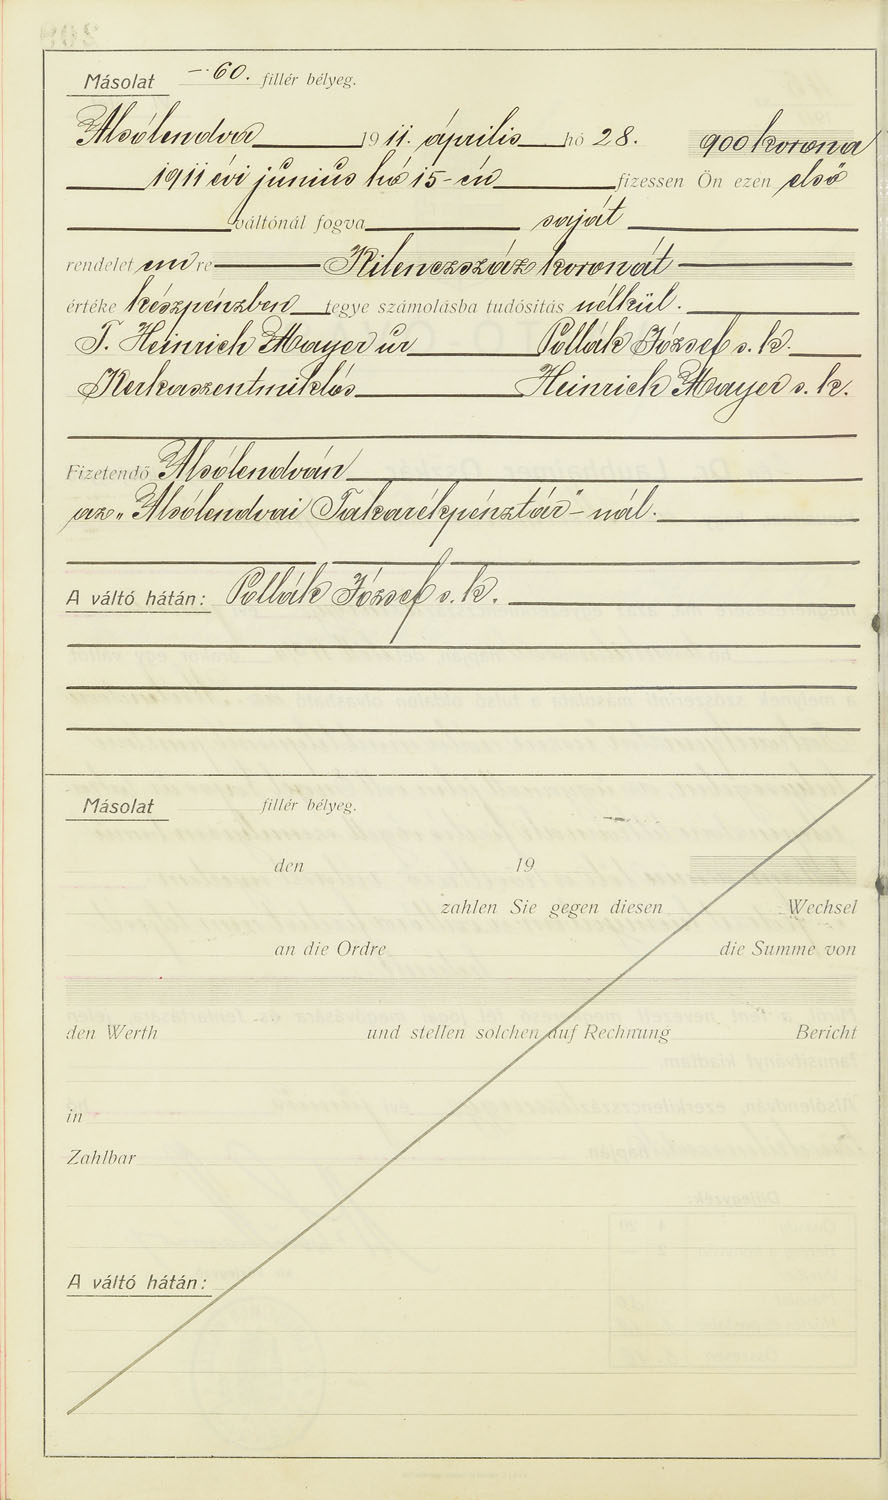 Másolat —·60. fillér bélyeg.
Alsólendva 1911. április hó 28. 900 korona
1911 évi junius hó 15-én fizessen Ön ezen első
váltónál fogva saját
rendeletemre Kilenczszáz koronát
értéke készpénzben tegye számolásba tudósítás nélkül.
T. Heinrich Mayer úr Pollák József s. k.
Kerkaszentmiklós Heinrich Mayer s. k.
Fizetendő Alsólendván
az „Alsólendvai Takarékpénztár"-nál.
A váltó hátán: Pollák József s. k.
Másolat fillér bélyeg.
den 19
zahlen Sie gegen diesen Wechsel
an die Ordre die Summe von
den Werth und stellen solchen auf Rechnung Bericht
in
Zahlbar
A váltó hátán: